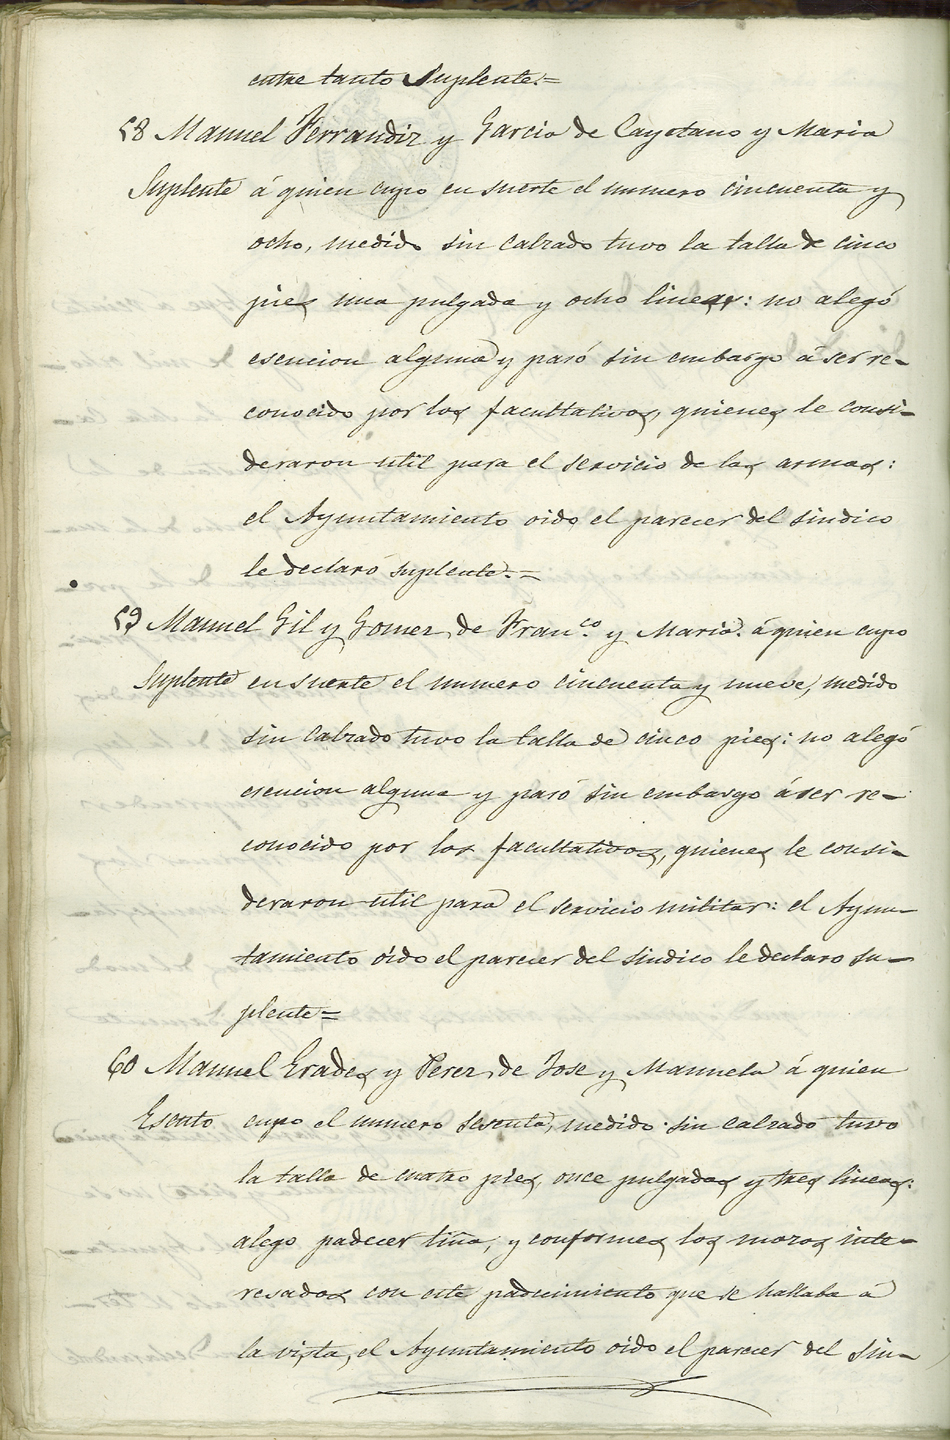 entre tanto Suplente.=
58 Manuel Ferrandiz y Garcia de Cayetano y Maria
Suplente á quien cupo en suerte el numero cincuenta y
ocho, medido sin calzado tuvo la talla de cinco
pies una pulgada y ocho lineas: no alegó
esencion alguna y pasó sin embargo á ser re-
conocido por los facultativos, quienes le consi-
deraron util para el servicio de las armas:
el Ayuntamiento oido el parecer del sindico
le declaró suplente.=
59 Manuel Gil y Gomez de Fran.co y Maria. á quien cupo
Suplente en suerte el numero cincuenta y nueve, medido
sin calzado tuvo la talla de cinco pies: no alegó
esencion alguna y pasó sin embargo á ser re-
conocido por los facultativos, quienes le consi-
deraron util para el servicio militar: el Ayun-
tamiento oido el parecer del sindico le declaro su-
plente=
60 Manuel Erades y Perez de Jose y Manuela á quien
Esento cupo el numero sesenta, medido sin calzado tuvo
la talla de cuatro pies, once pulgadas y tres lineas:
alego padecer tiña; y conformes los mozos inte-
resados con este padecimiento que se hallaba á
la vista, el Ayuntamiento oido el parecer del sin-